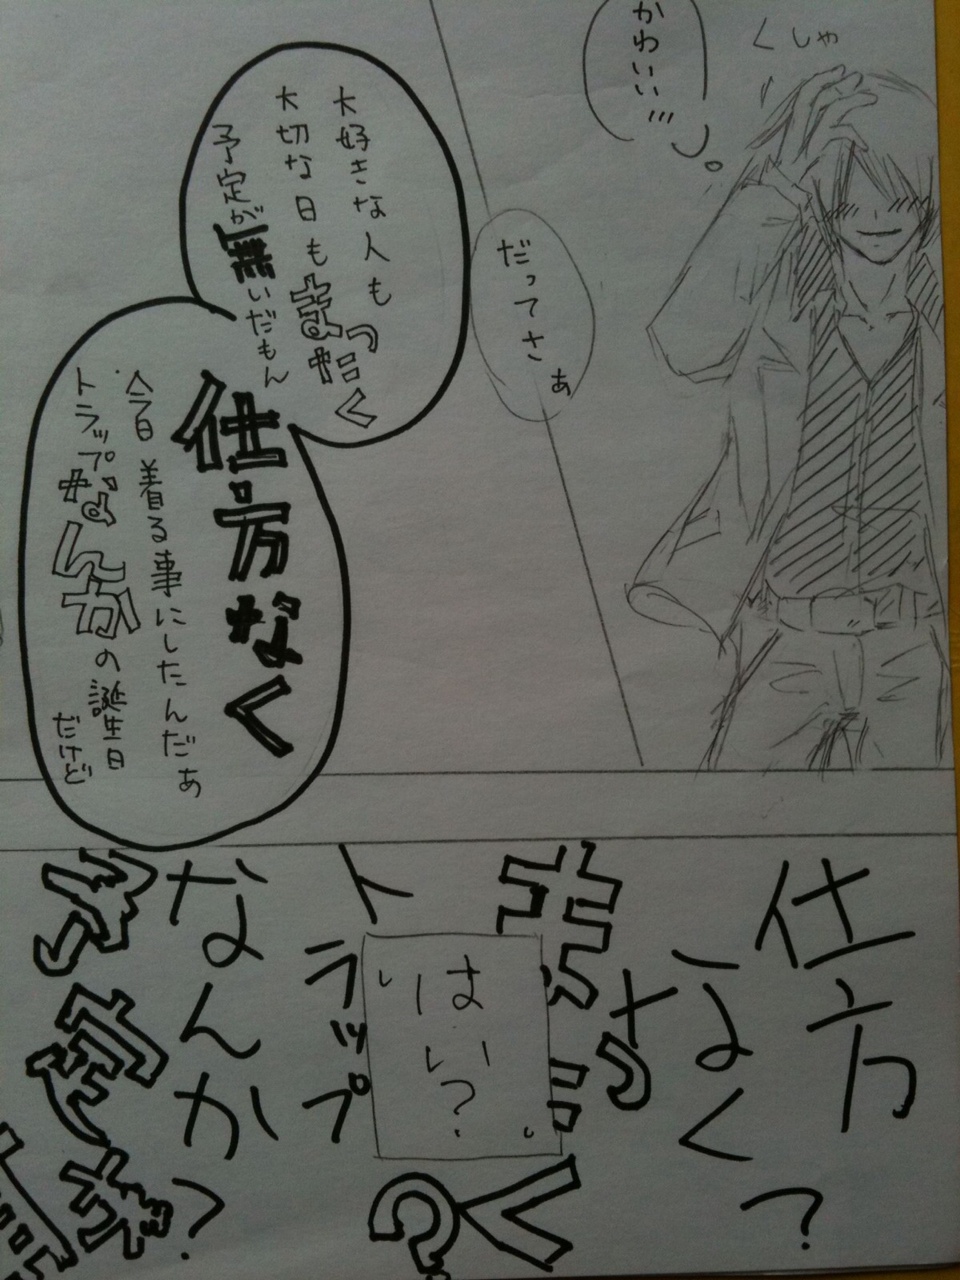 くしゃ
かわいい…
だってさぁ
大好きな人も
大切な日もまったく
予定が無いだもん
仕方なく
今日着る事にしたんだぁ
トラップなんかの誕生日
だけど
仕方
なく?
まったく?
「はい?」
トラップ
なんか?